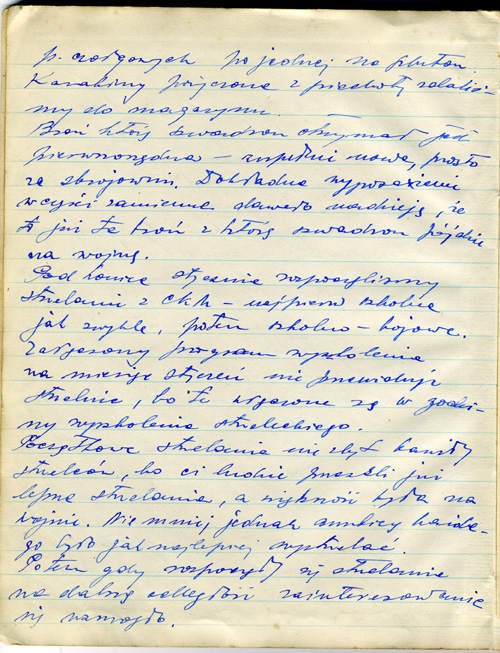 p. czołgowych po jednej na pluton.
Karabiny pożyczone z piechoty zdaliś-
my do magazynu.
Broń którą szwadron otrzymał jest
pierwszorzędna – zupełnie nowa, prosto
ze zbrojowni. Dokładne wyposażenie
w części zamienne dawało nadzieję, że
to już ta broń z którą szwadron pójdzie
na wojnę.
Pod koniec stycznia rozpoczęliśmy
strzelanie z ckm – najpierw szkolne
jak zwykle, potem szkolno – bojowe.
program wyszkolenia
na miesiąc styczeń nie przewiduje
strzelnic, bo te wiązane są w godzi-
ny wyszkolenia strzeleckiego.
Początkowe strzelania nie zbyt
strzelców, bo ci ludzie przeszli już
lepsze strzelania, a większość była na
wojnie. Nie mniej jednak ambicją każde-
go było jak najlepiej wystrzelać.
Potem gdy rozpoczęły się strzelania
na dalsze odległości zainteresowanie
się wzmogło.